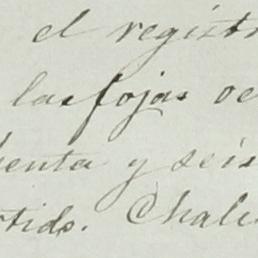 el registr
las fojas oc
henta y seis
rtido. Chalc